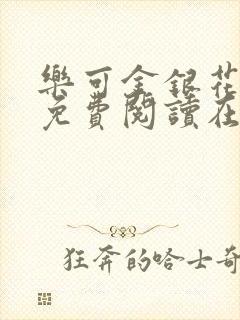 樂可金銀花
免費閱讀在
狂奔的哈士奇